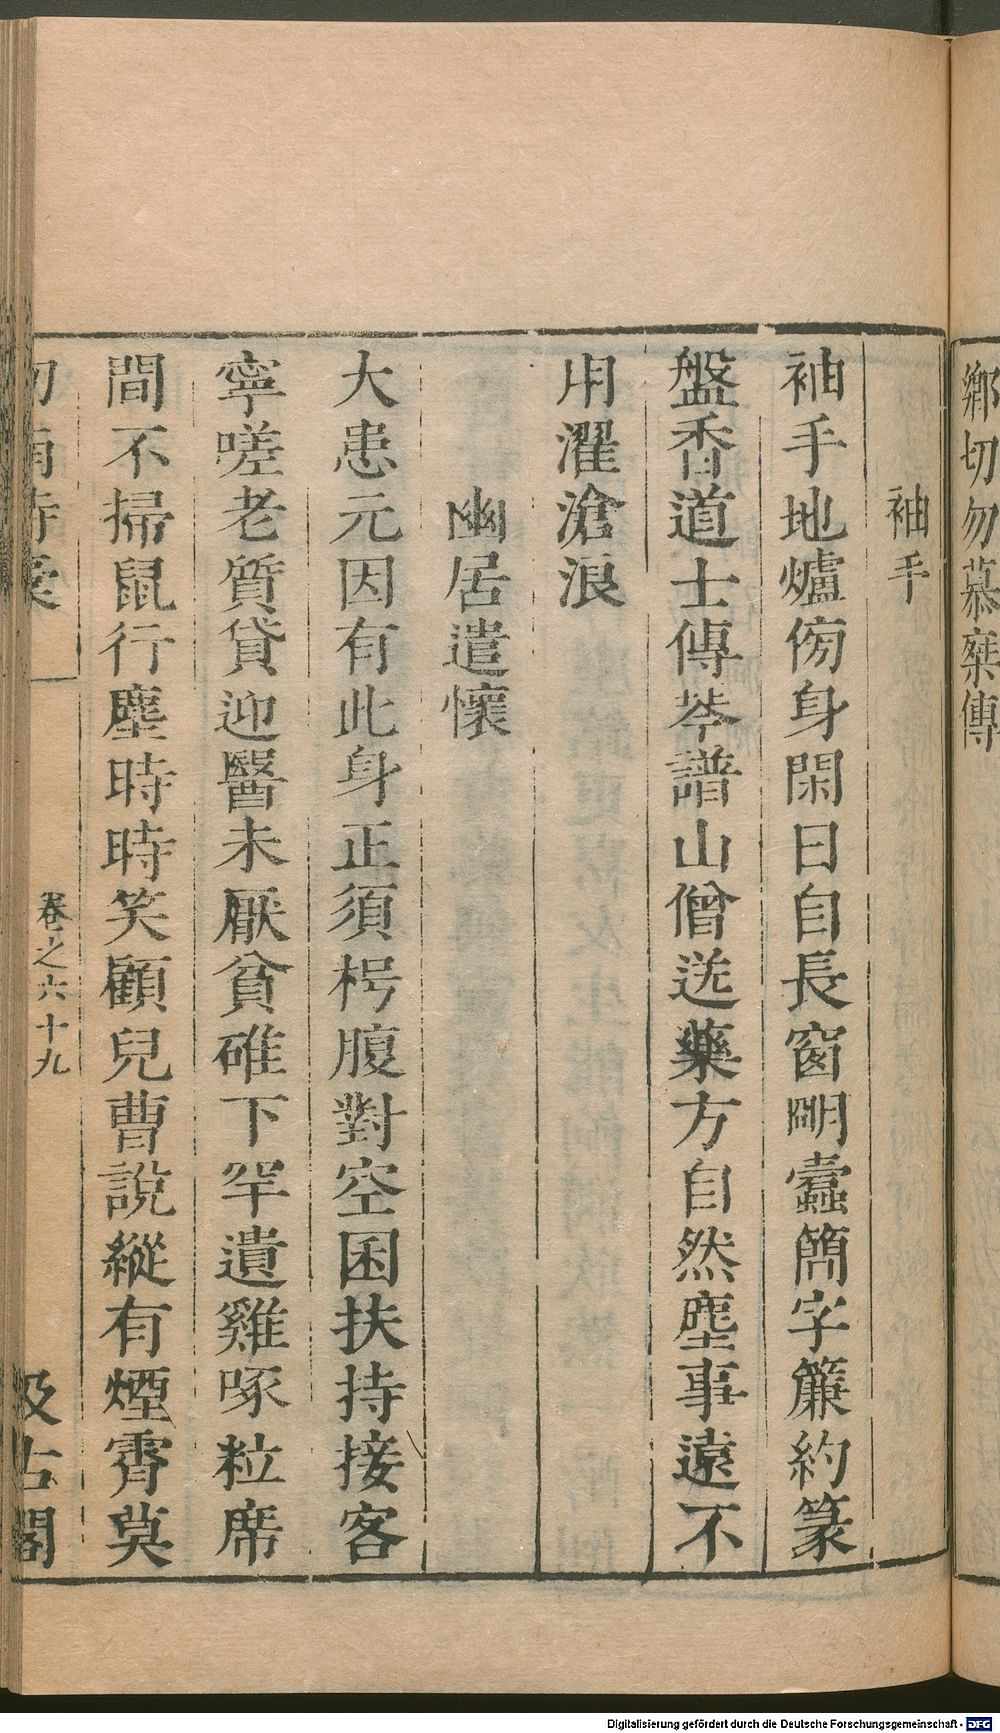 鄉切勿慕桀傳
袖手
袖手地爐傍身閑日自長窗明蠹簡字簾約篆
盤香道士傳棊譜山僧送藥方自然塵事遠不
用濯滄浪
幽居遣懷
大患元因有此身正須枵腹對空囷扶持接客
寧嗟老質貸迎醫未厭貧碓下罕遺雞啄粒席
間不掃鼠行塵時時笑顧兒曹說縱有煙霄莫
卷之六十九
汲古閣
Digitalisierung gefördert durch die Deutsche Forschungsgemeinschaft - DFG